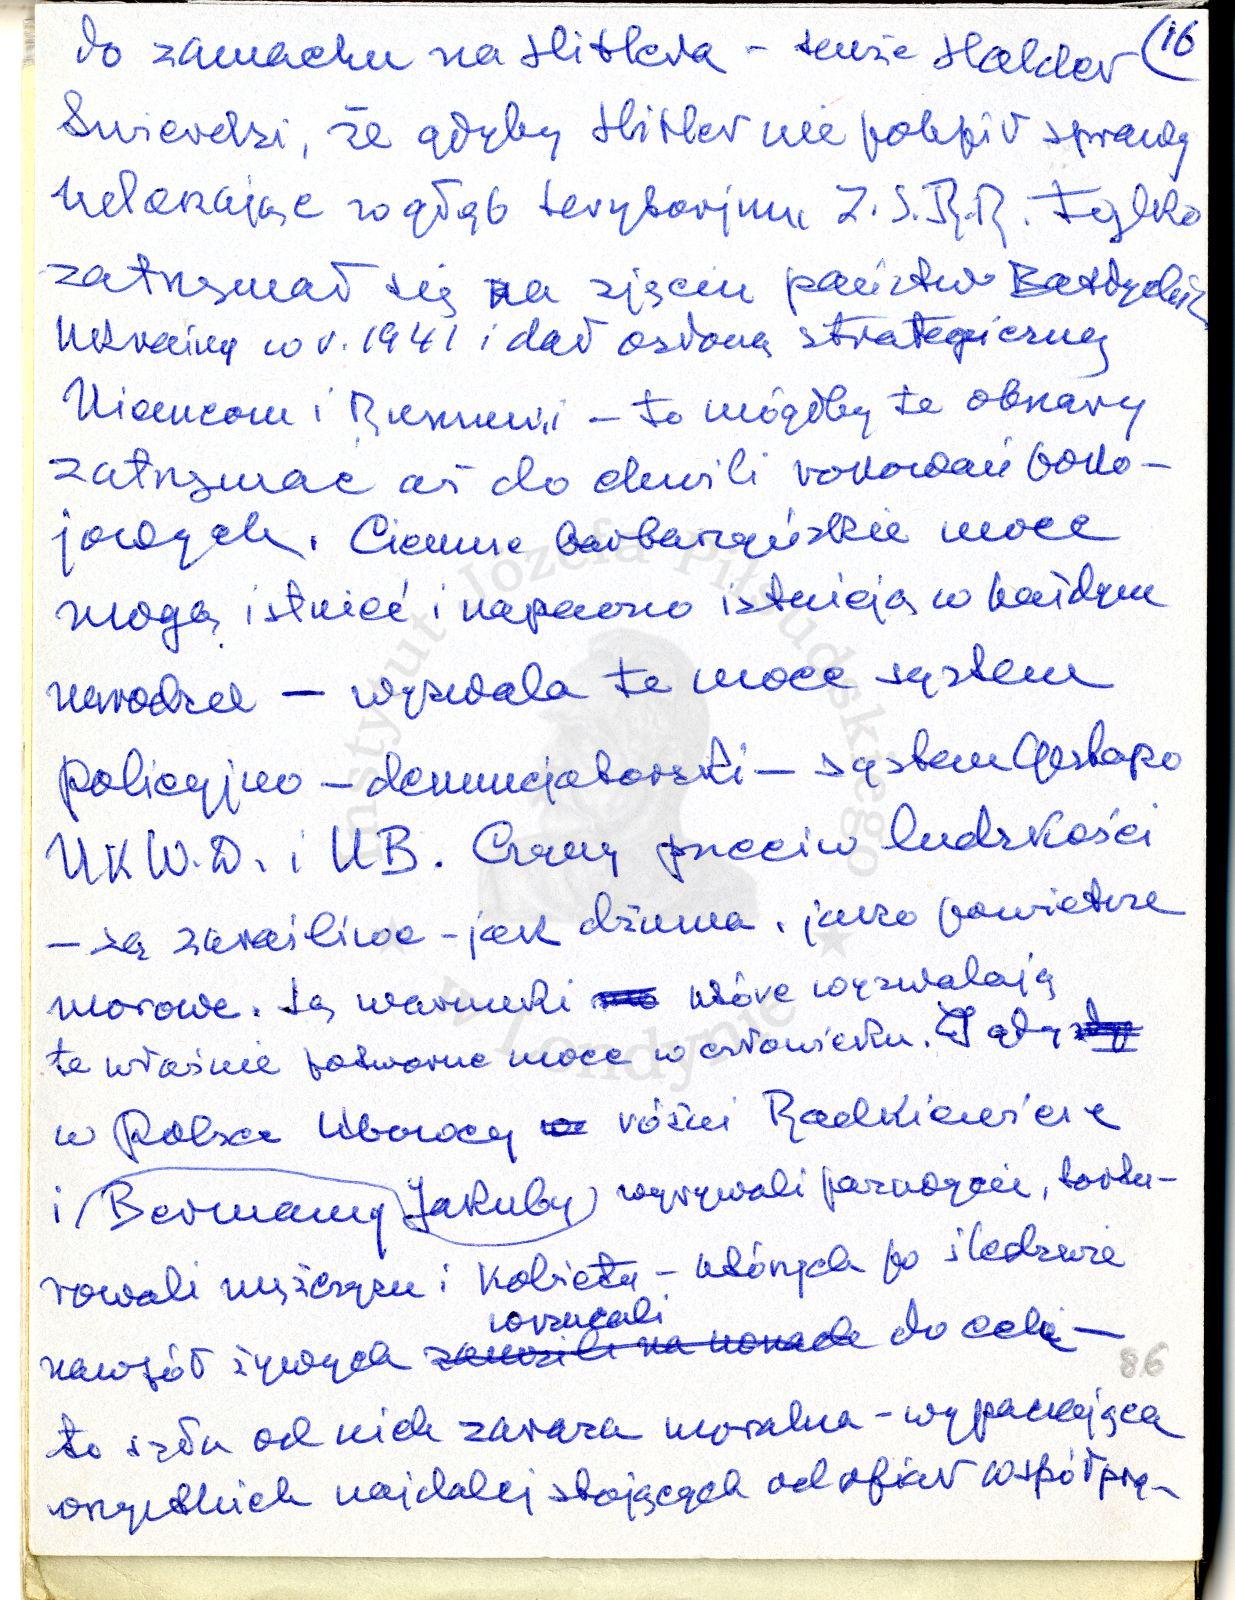 (16
do zamachu na Hitlera – tenże Halder
twierdzi, że gdyby Hitler nie pokpił sprawy
włażąc w głąb terytorium Z.S.R.R. tylko
zatrzymał się na zjęciu państw Bałtyckich
Ukrainy w r. 1941 i dał osłonę strategiczną
Niemcom i Rumunii – to mógłby te obszary
zatrzymać aż do chwili rokowań poko-
jowych. Ciemne barbarzyńskie moce
mogą istnieć i napewno istnieją w każdym
narodzie – wyzwala te moce system
policyjno – denuncjatorski – system Gestapo
NKW.D. i UB. Czyny przeciw ludzkości
– są zaraźliwe – jak dżuma, jako powietrze
morowe. Są warunki które wyzwalają
te właśnie potworne moce w człowieku. I gdy
w Polsce Ubowcy różni Radkiewicze
i Bermany Jakuby wyrywali paznogcie, tortu-
rowali mężczyzn i kobiety – których po śledztwie
wrzucali
nawpół żywych zanosili na noszach do celi –
to szła od nich zaraza moralna – wypaczająca
wszystkich najdalej stojących od ofiar współprą-
86
Instytut Józefa Piłsudskiego
w Londynie